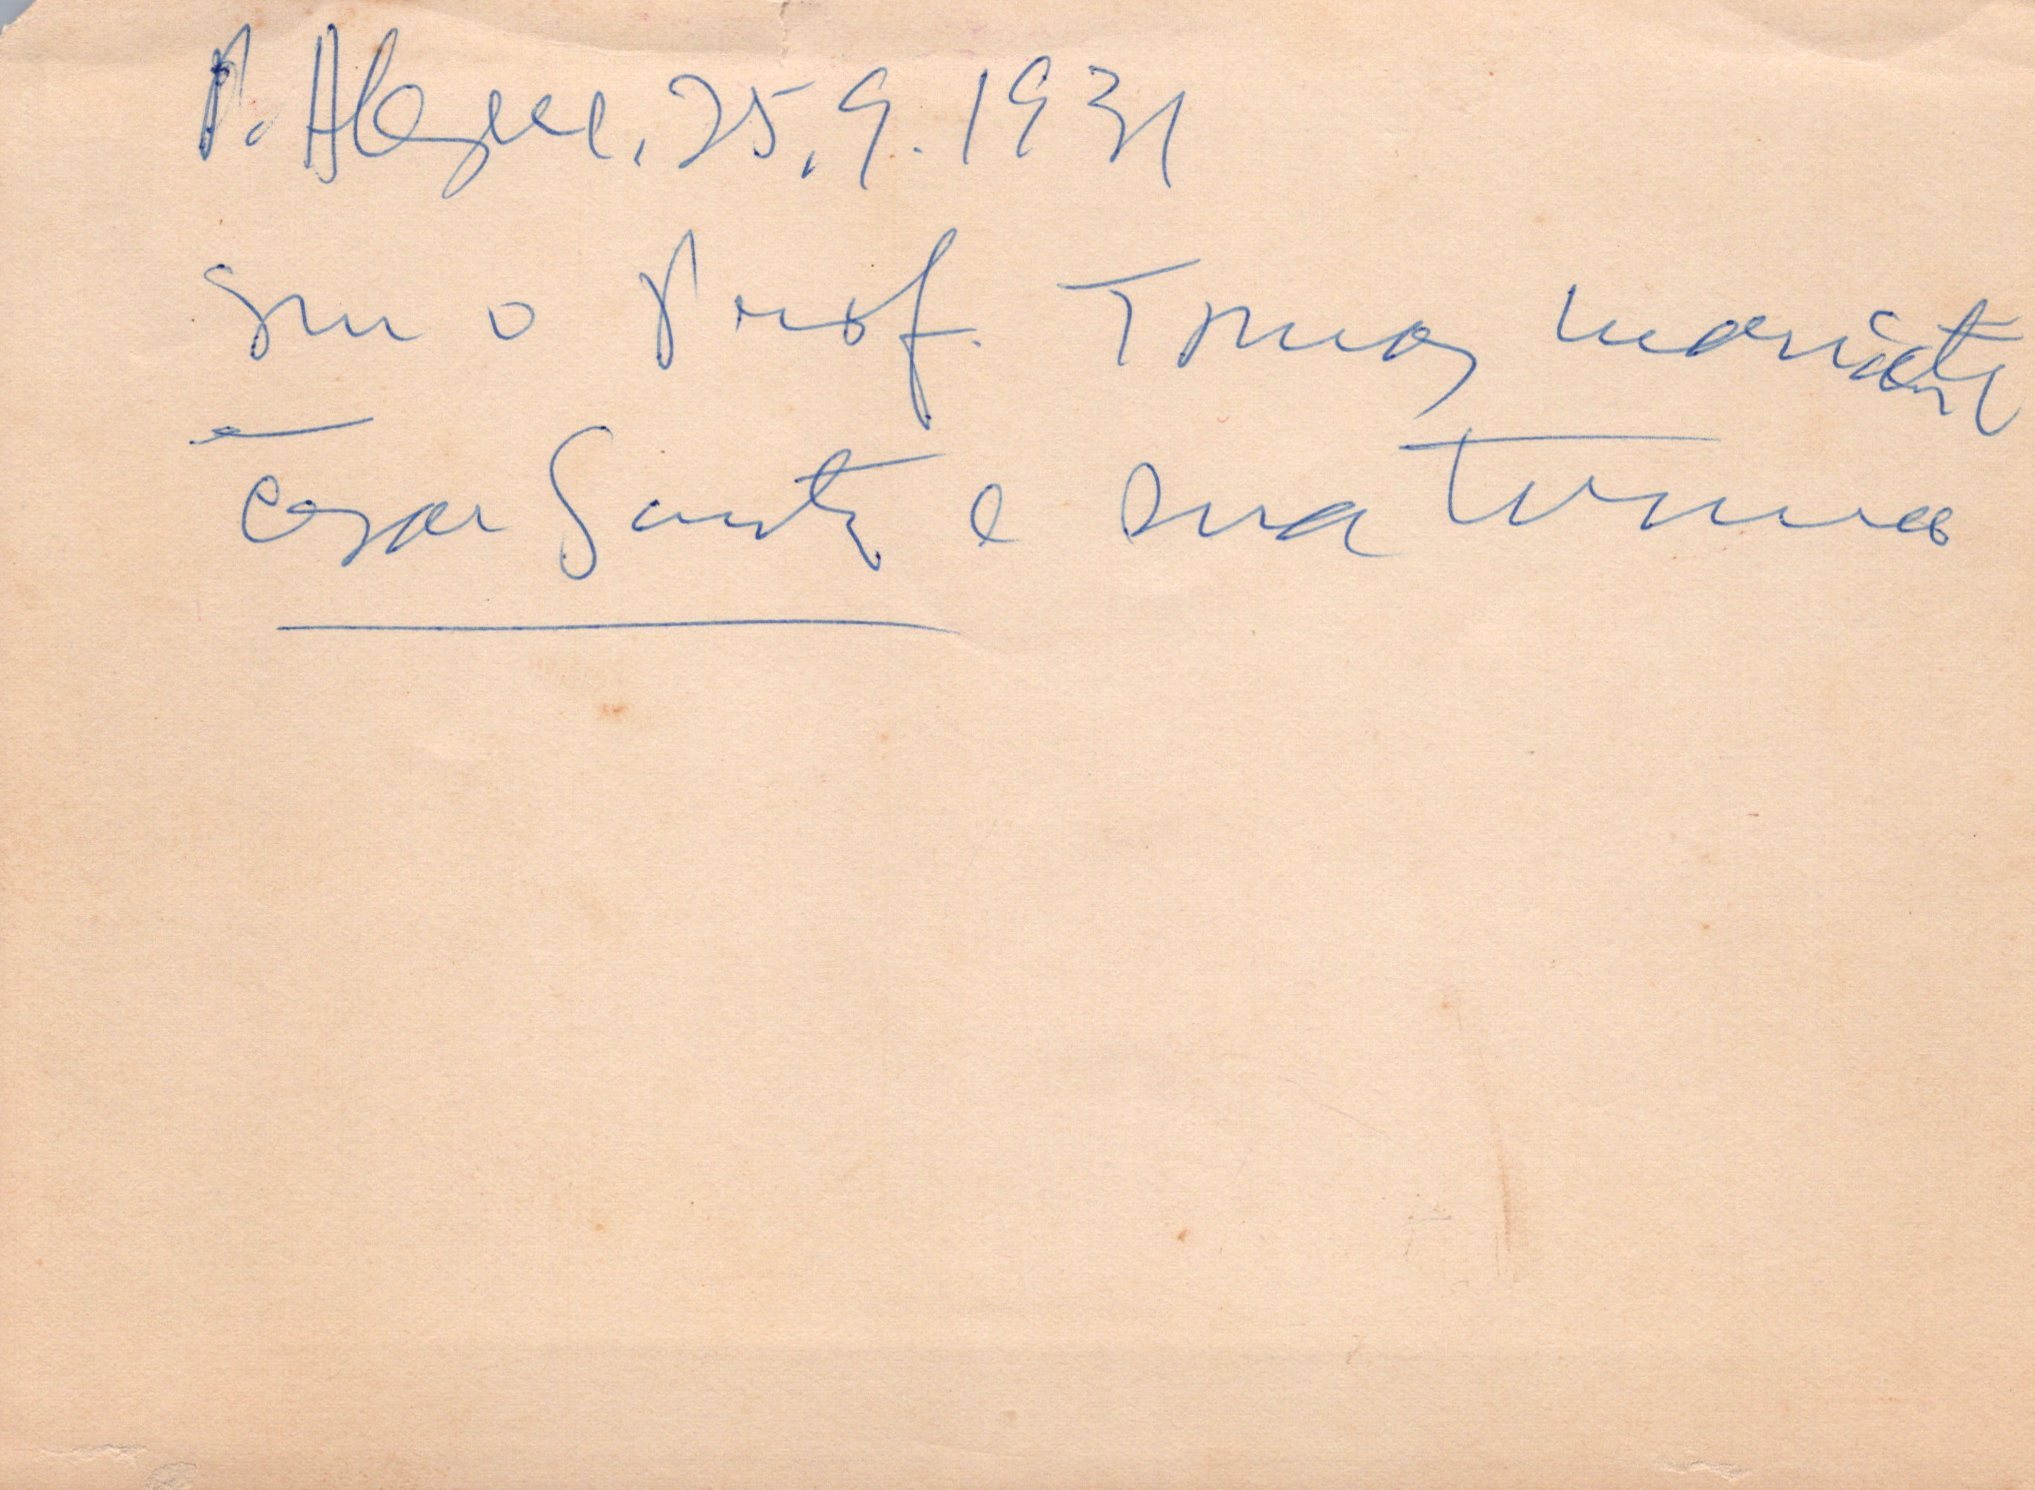 P. Alegre, 25.9.1931
o Prof. Tomaz Mariante
e Cezar Santos e sua turma